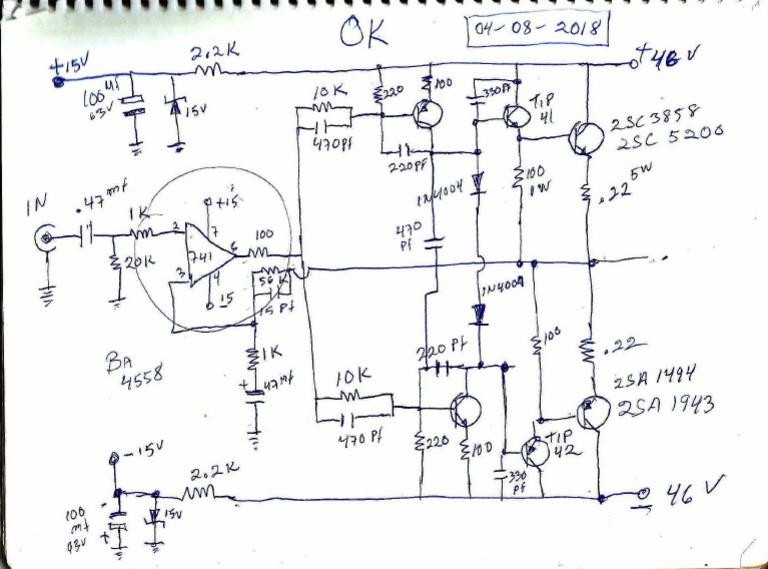 OK
04-08-2018
+15V
2.2K
+46V
100 Mf
63V
15V
10K
470pf
220
100
220pf
330Pf
TIP
41
2SC 3858
2SC 5200
100
1W
.22 5W
1N4004
470
Pf
IN
.47mf
1K
20K
2
3
741
7
+15
6
4
15
100
56K
15 Pf
1K
+
47mf
BA
4558
1N4004
100
.22
220 Pf
10K
470 Pf
220
100
TIP
42
330
Pf
2SA 1494
2SA 1943
-15V
2.2K
100
mf
63V
+
15V
46 V